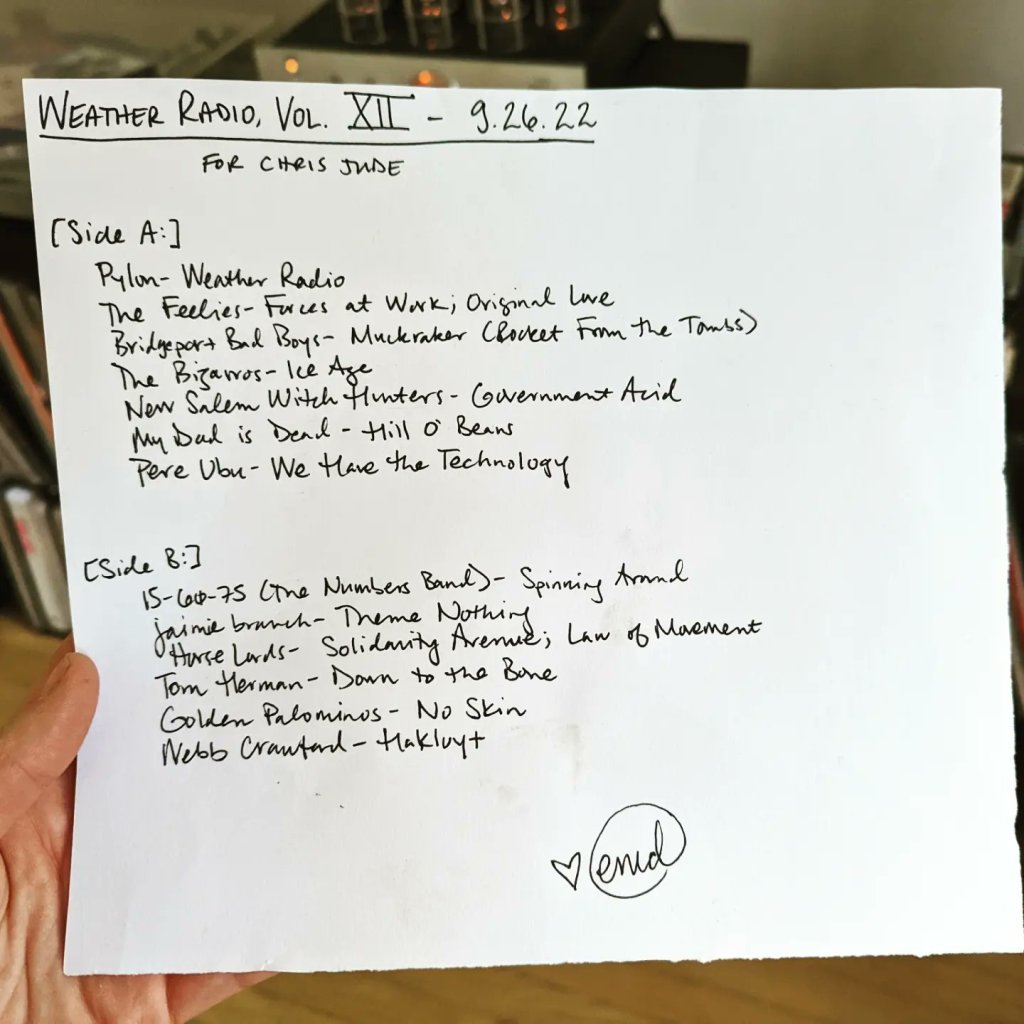 WEATHER RADIO, VOL. XII - 9.26.22
FOR CHRIS JUDE
[Side A:]
Pylon- Weather Radio
The Feelies- Forces at Work; Original Love
Bridgeport Bad Boys- Muckraker (Rocket From the Tombs)
The Bizarros- Ice Age
New Salem Witch Hunters- Government Acid
My Dad is Dead - Hill O' Beans
Pere Ubu- We Have the Technology
[Side B:]
15-60-75 (The Numbers Band)- Spinning Around
jaimie branch- Theme Nothing
Horse Lords- Solidarity Avenue; Law of Movement
Tom Herman- Down to the Bone
Golden Palominos- No Skin
Webb Crawford- Hakluyt
♡ enid